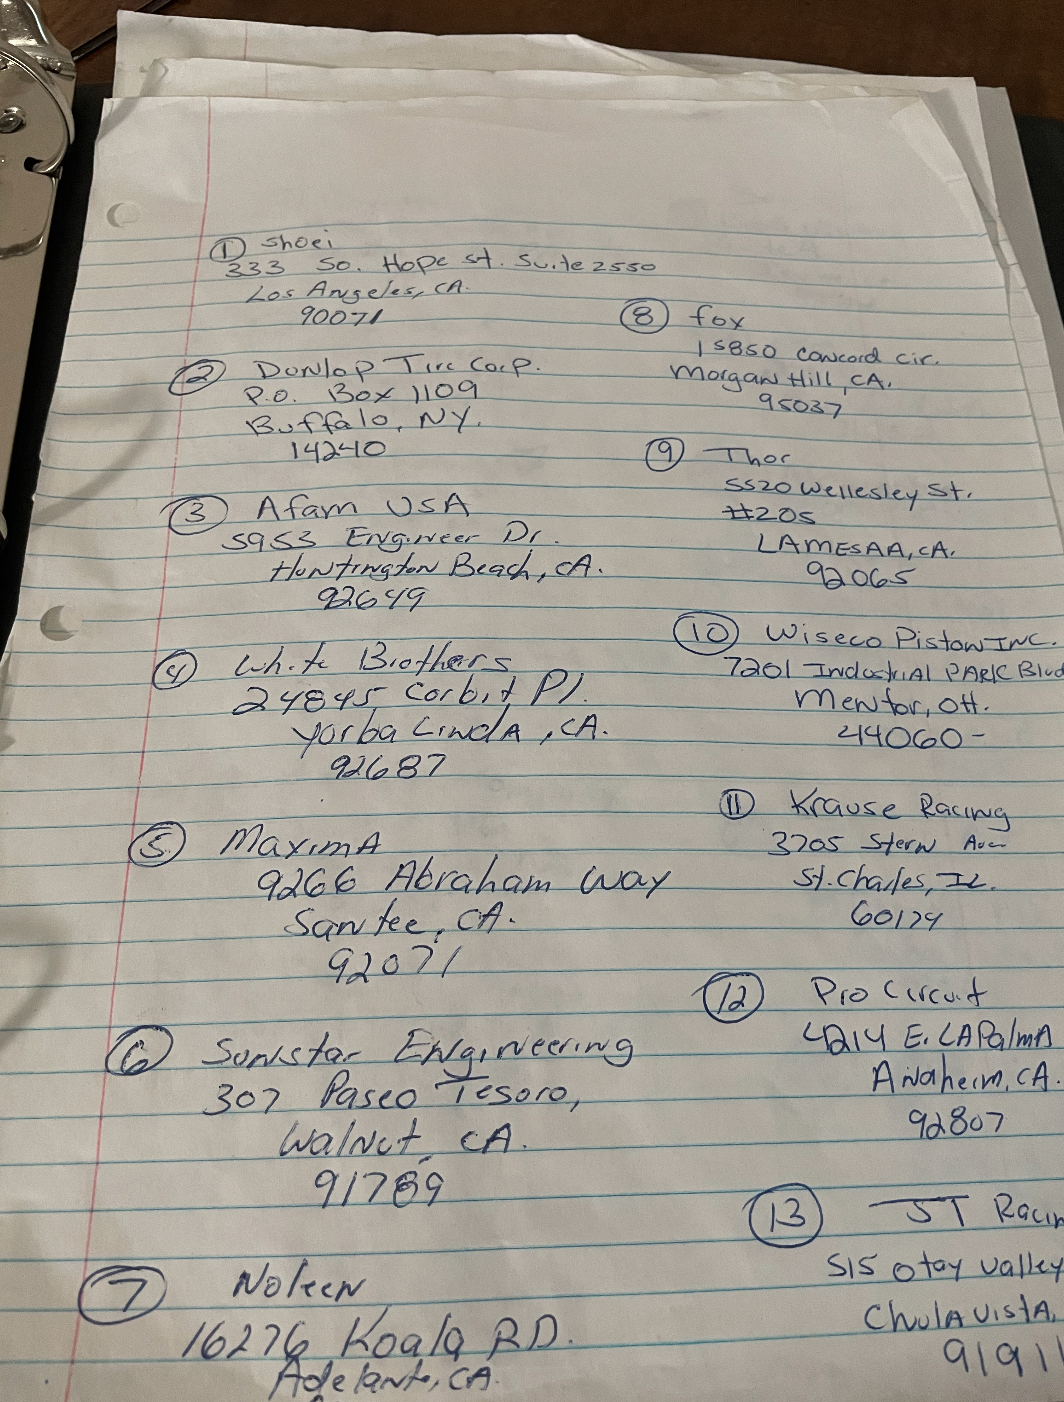 ① Shoei
333 So. Hope st. Suite 2550
Los Angeles, CA.
90071
② Dunlop Tire Corp.
P.O. Box 1109
Buffalo, NY.
14240
③ Afam USA
5953 Engineer Dr.
Huntington Beach, CA.
92649
④ White Brothers
24845 Corbit Pl.
Yorba Linda, CA.
92687
⑤ Maxima
9266 Abraham Way
Santee, CA.
92071
⑥ Sunstar Engineering
307 Paseo Tesoro,
Walnut, CA.
91789
⑦ Noleen
16276 Koala RD.
Adelanto, CA.
⑧ fox
15850 Concord Cir.
Morgan Hill, CA.
95037
⑨ Thor
5520 Wellesley St.
#205
LAMESAA, CA.
92065
⑩ Wiseco Piston INC.
7201 Industrial PARK Blvd
Mentor, OH.
44060-
⑪ Krause Racing
3705 Stern Ave
St. Charles, IL.
60174
⑫ Pro Circuit
4214 E. LA Palma
Anaheim, CA.
92807
⑬ JT Racin
515 Otay Valley
Chula Vista,
91911